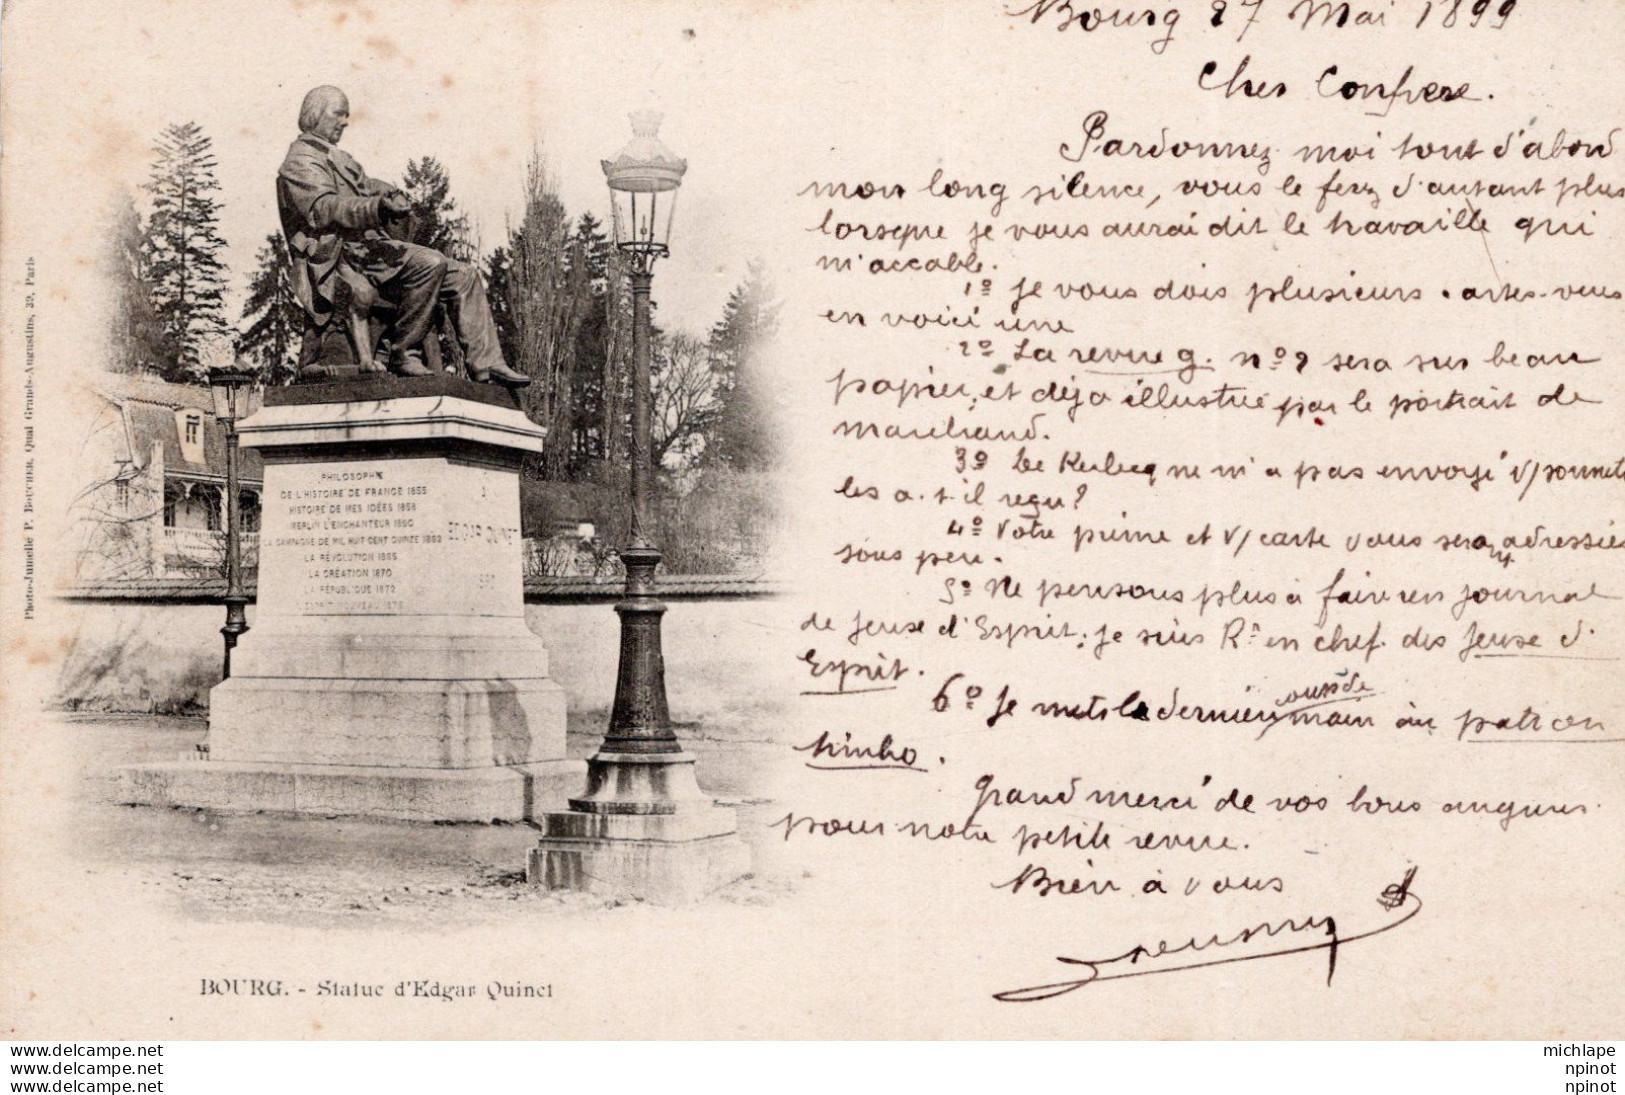 Bourg 27 Mai 1899
Cher Confrere.
Pardonnez moi tout d'abord
mon long silence, vous le ferez d'autant plus
lorsque je vous aurai dit le travaille qui
m'accable.
1º Je vous dois plusieurs cartes-vues
en voici une
2º La revue g. nº 2 sera sur beau
papier, et déja illustrée par le portrait de
marchand.
3º Le ne m'a pas envoyé v/sonnets
les a-t-il reçu?
4º Votre prime et v/carte vous seront adressées
sous peu.
5º Ne pensons plus à faire un journal
de Jeux d'Esprit; je suis Rr en chef des Jeux d'
Esprit.
6º Je mets la dernière main au patron
timbo.
Grand merci de vos bons augures
pour notre petite revue.
Bien à vous
PHILOSOPHIE
DE L'HISTOIRE DE FRANCE 1855
HISTOIRE DE MES IDÉES 1858
MERLIN L'ENCHANTEUR 1860
LA CAMPAGNE DE MIL HUIT CENT QUINZE 1862
LA RÉVOLUTION 1865
LA CRÉATION 1870
LA RÉPUBLIQUE 1872
L'ESPRIT NOUVEAU 1875
EDGAR QUINET
Photo-Jumelle P. BOUCHER, Quai Grands-Augustins, 39, Paris
BOURG. - Statue d'Edgar Quinet
www.delcampe.net
www.delcampe.net
www.delcampe.net
michlape
npinot
npinot